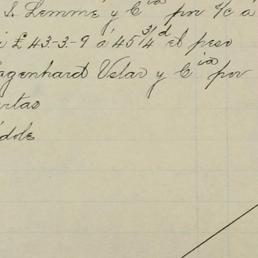 S. Lemme y Cia por s/c á
i £ 43-3-9 á 45 3/4 d el peso
agenhard Velar y Cia por
rtas
dole